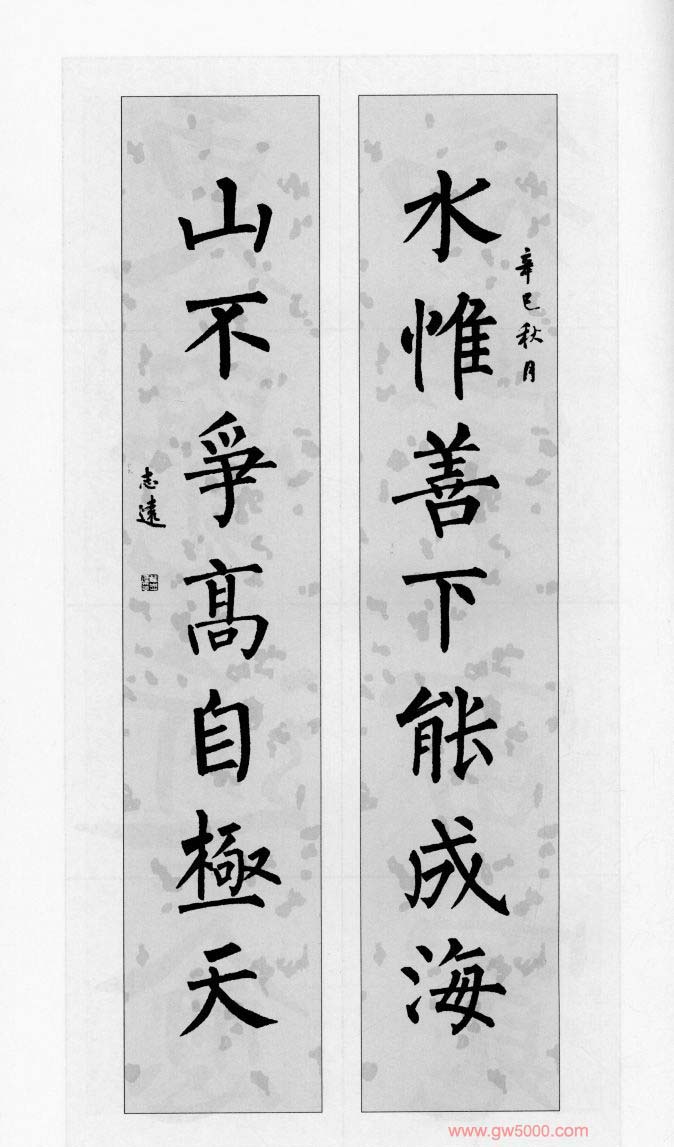 辛巳秋月
水惟善下能成海
山不爭髙自極天
志遠
www.gw5000.com